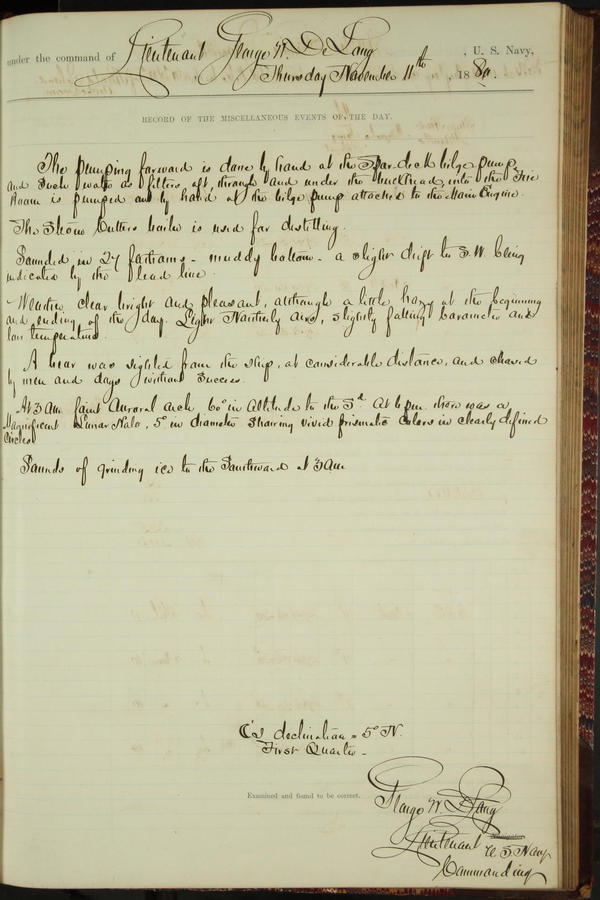 under the command of Lieutenant George W. De Long, U. S. Navy,
Thursday November 11th, 1880.
RECORD OF THE MISCELLANEOUS EVENTS OF THE DAY.
The pumping forward is done by hand at the Spar-deck bilge pump,
and such water as filters aft, through and under the bulkhead, into the Fire
Room is pumped out by hand at the bilge pump attached to the Main Engine.
The Steam Cutters boiler is used for distilling.
Sounded in 27 fathoms - muddy bottom - a slight drift to S.W. being
indicated by the lead line.
Weather clear bright and pleasant, although a little hazy at the beginning
and ending of the day. Light Northerly airs, slightly falling barometer and
low temperature.
A bear was sighted from the ship, at considerable distance, and chased
by men and dogs without success.
At 3 AM faint Auroral arch 60° in altitude to the Sd At 6 pm there was a
Magnificent Lunar Halo, 5° in diameter showing vivid prismatic colors in clearly defined
circles.
Sounds of grinding ice to the Southward at 3 AM
☾'s declination = 5° N.
First Quarter -
Examined and found to be correct.
George W. De Long
Lieutenant U S Navy
Commanding